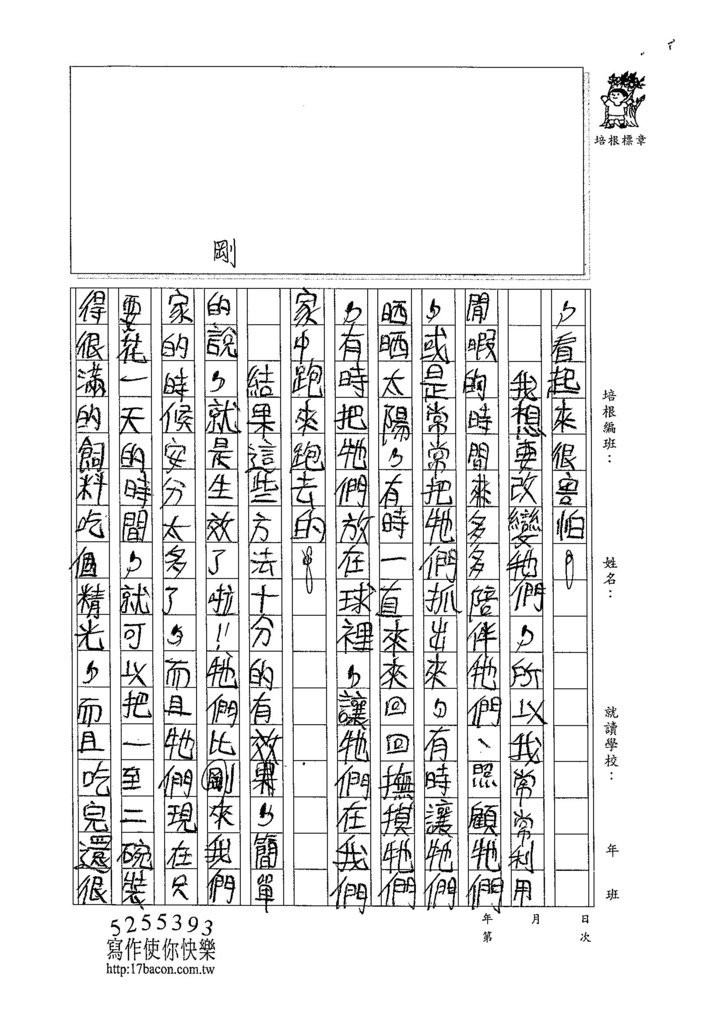 培根標章
剛
培根編班：
姓名：
就讀學校：
年 班
，看起來很害怕。
我想要改變牠們，所以我常常利用
閒暇的時間來多多陪伴牠們、照顧牠們
，或是常常把牠們抓出來，有時讓牠們
晒晒太陽，有時一直來來回回撫摸牠們
，有時把牠們放在球裡，讓牠們在我們
家中跑來跑去的。
結果這些方法十分的有效果，簡單
的說，就是生效了啦!!牠們比剛來我們
家的時候安分太多了，而且牠們現在只
要花一天的時間，就可以把一至二碗裝
得很滿的飼料吃個精光，而且吃完還很
年 月 日
第 次
5255393
寫作使你快樂
http:17bacon.com.tw